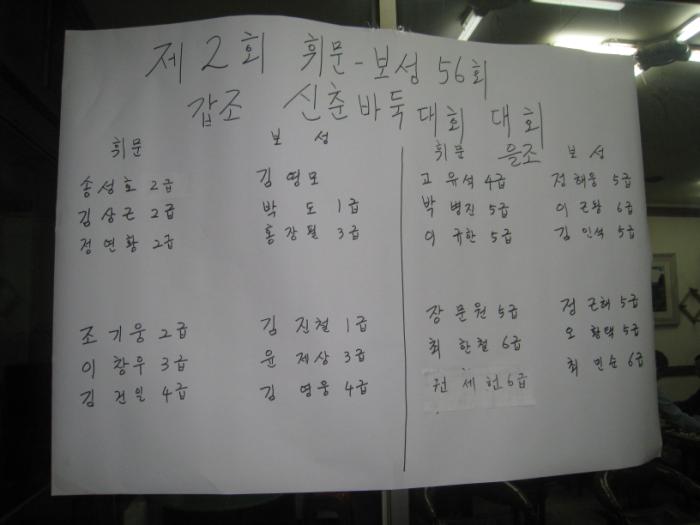 제 2회 휘문-보성 56회
갑조 신춘바둑대회 대회
을조
휘문 보성
송성호 2급 김영모
김상근 2급 박도 1급
정연황 2급 홍장필 3급
조기웅 2급 김진철 1급
이창우 3급 윤제상 3급
김건일 4급 김영웅 4급
휘문 보성
고유석 4급 정해웅 5급
박병진 5급 이근왕 6급
이규한 5급 김인석 5급
장문원 5급 정근희 5급
최한철 6급 오황택 5급
권세헌 6급 최민순 6급